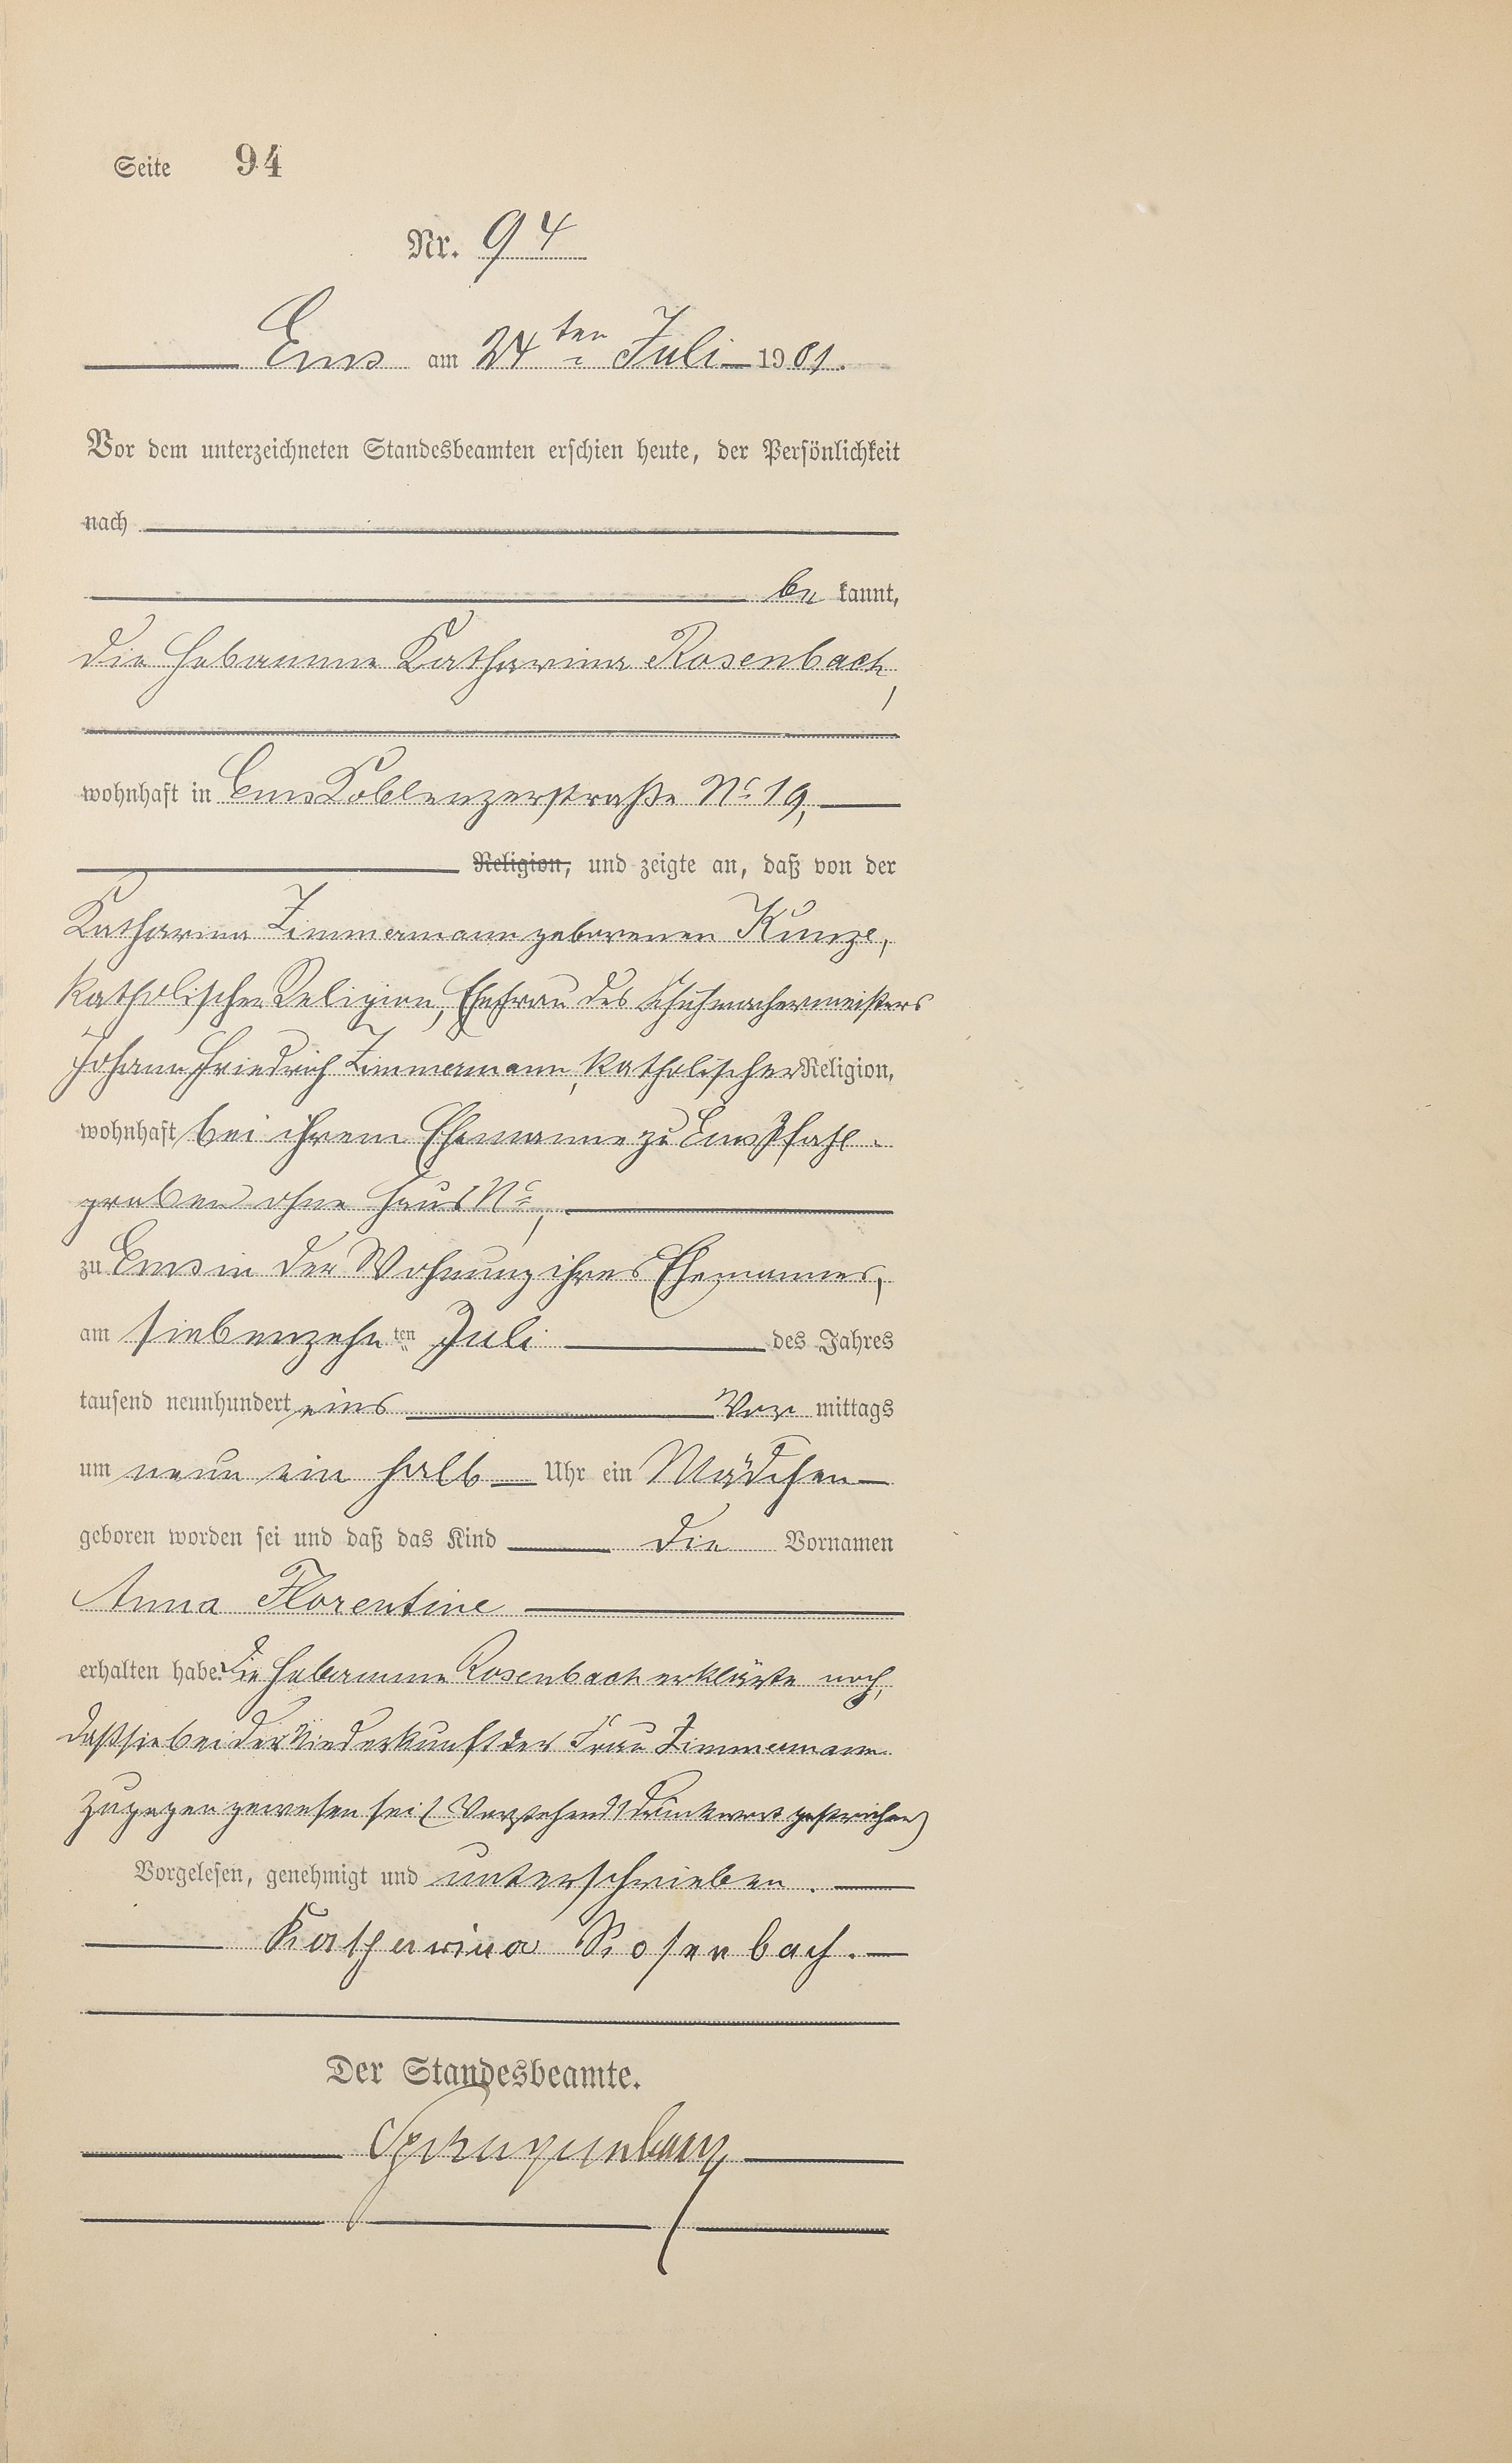 Seite 94
Nr. 94
Ems am 24ten Juli 1901.
Vor dem unterzeichneten Standesbeamten erschien heute, der Persönlichkeit
nach
be kannt,
die Hebamme Katharina Rosenbach,
wohnhaft in Ems Koblenzerstraße No 19,
Religion, und zeigte an, daß von der
Katharina Zimmermann geborenen Kunze,
katholischer Religion, Ehefrau des Schuhmachermeisters
Johann Friedrich Zimmermann, katholischer Religion,
wohnhaft bei ihrem Ehemanne zu Ems Pfahl-
graben ohne Haus No,
zu Ems in der Wohnung ihres Ehemannes,
am siebenzehnten Juli des Jahres
tausend neunhundert eins Vor mittags
um neun ein halb Uhr ein Mädchen
geboren worden sei und daß das Kind die Vornamen
Anna Florentine
erhalten habe. Die Hebamme Rosenbach erklärte noch,
daß sie bei der Niederkunft der Frau Zimmermann
zugegen gewesen sei (Vorstehend 1 Druckwort gestrichen)
Vorgelesen, genehmigt und unterschrieben.
Katharina Rosenbach.
Der Standesbeamte.